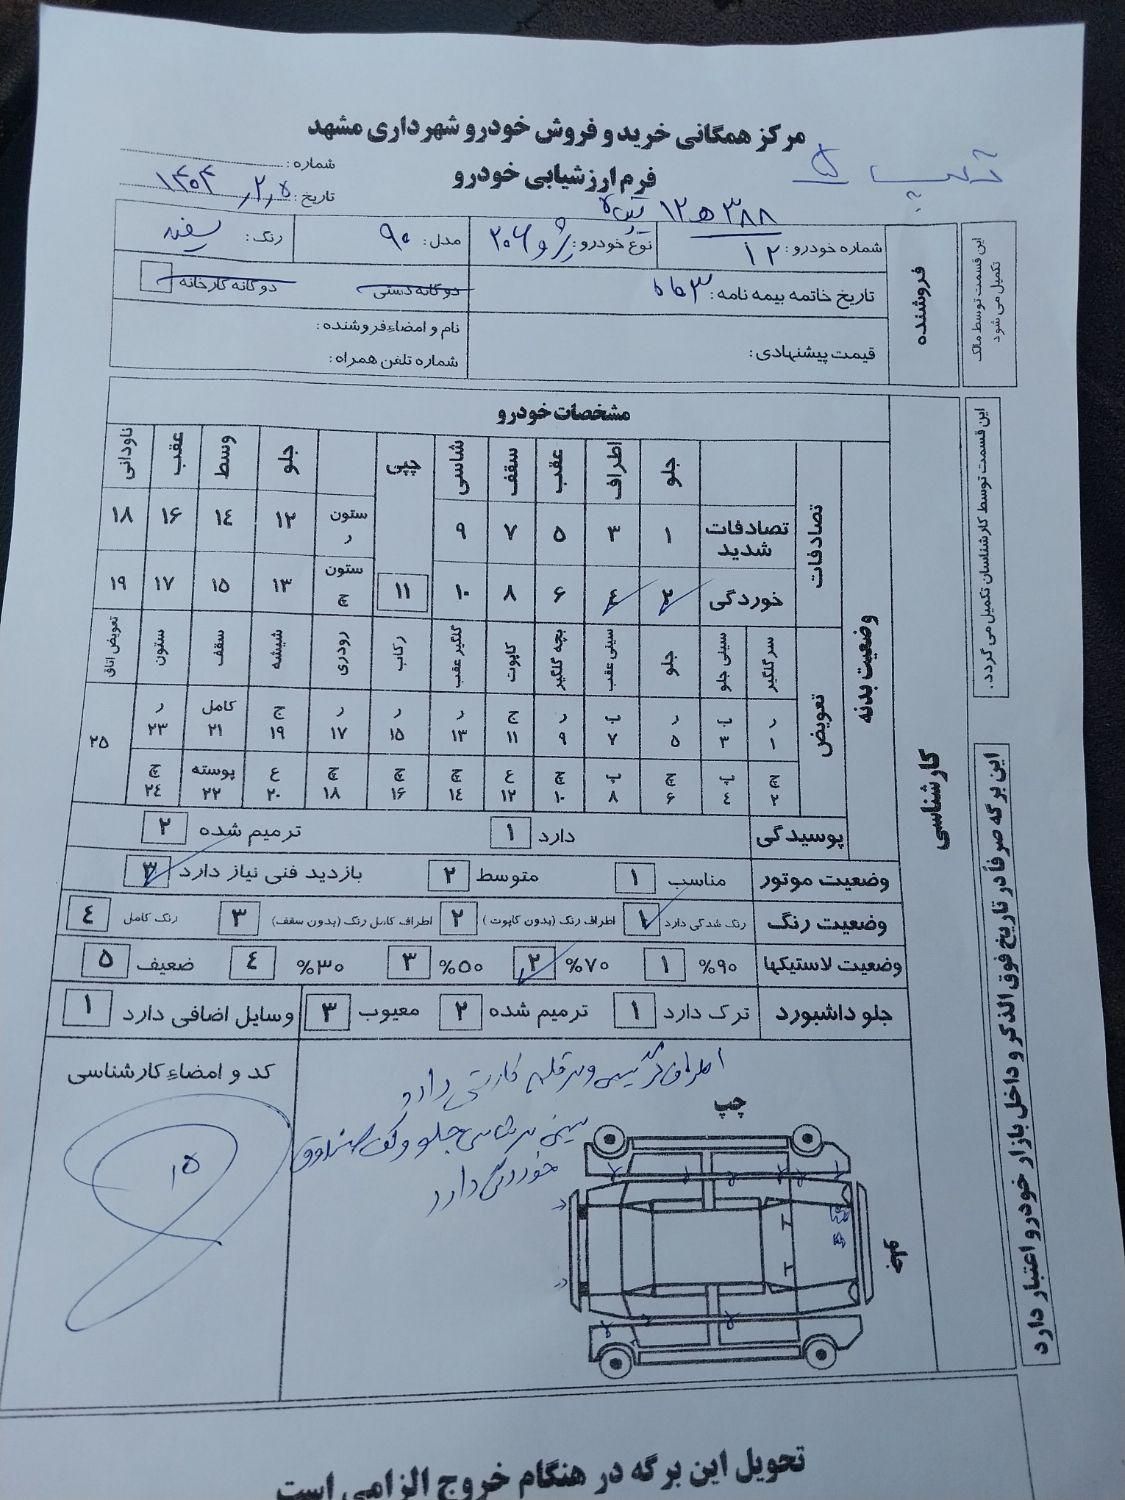 مرکز همگانی خرید و فروش خودرو شهرداری مشهد
فرم ارزشیابی خودرو
تیپ ۵
شماره :
تاریخ : ۱۴۰۴٫۲٫۵
این قسمت توسط مالک تکمیل می شود
فروشنده
شماره خودرو : ۳۸۸ ه ۱۲
۱۲
نوع خودرو : پژو ۲۰۶ تیپ ۵
مدل : ۹۰
رنگ : سفید
تاریخ خاتمه بیمه نامه :
دوگانه دستی
دوگانه کارخانه
قیمت پیشنهادی :
نام و امضاء فروشنده :
شماره تلفن همراه :
این قسمت توسط کارشناسان تکمیل می گردد.
کارشناسی
مشخصات خودرو
وضعیت بدنه
تصادفات
جلو اطراف عقب سقف شاسی پی جلو وسط عقب ناودانی
تصادفات شدید ۱ ۳ ۵ ۷ ۹ ستون ر ۱۲ ۱۴ ۱۶ ۱۸
خوردگی ۲ ۴ ۶ ۸ ۱۰ ۱۱ ستون چ ۱۳ ۱۵ ۱۷ ۱۹
تعویض
سر گلگیر سینی جلو جلو سینی عقب بچه گلگیر کاپوت گلگیر عقب رکاب رودری شیشه سقف ستون تعویض اتاق
ر ۱ ب ۳ ر ۵ ب ۷ ر ۹ ج ۱۱ ر ۱۳ ر ۱۵ ر ۱۷ ج ۱۹ کامل ۲۱ ر ۲۳ ۲۵
چ ۲ ب ۴ چ ۶ ب ۸ چ ۱۰ ع ۱۲ چ ۱۴ چ ۱۶ چ ۱۸ ع ۲۰ پوسته ۲۲ چ ۲۴
پوسیدگی دارد ۱ ترمیم شده ۲
وضعیت موتور مناسب ۱ متوسط ۲ بازدید فنی نیاز دارد ۳
وضعیت رنگ رنگ شدگی دارد ۱ اطراف رنگ (بدون کاپوت ) ۲ اطراف کامل رنگ (بدون سقف) ۳ رنگ کامل ۴
وضعیت لاستیکها %۹۰ ۱ %۷۰ ۲ %۵۰ ۳ %۳۰ ۴ ضعیف ۵
جلو داشبورد ترک دارد ۱ ترمیم شده ۲ معیوب ۳ وسایل اضافی دارد ۱
کد و امضاء کارشناسی
۱۵
دارد
سینی سرشاسی جلو و کف صندوق
خوردگی دارد
چپ
این برگه صرفاً در تاریخ فوق الذکر و داخل بازار خودرو اعتبار دارد
تحویل این برگه در هنگام خروج الزامی است